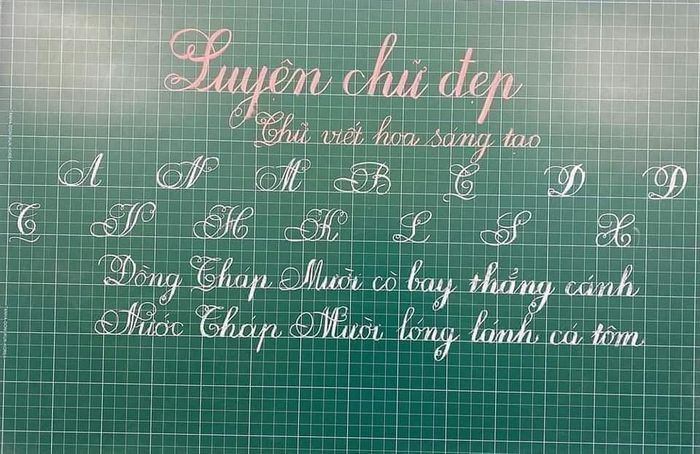 Luyện chữ đẹp
Chữ viết hoa sáng tạo
A N M B T D D
T V H K L S X
Đồng Tháp Mười cò bay thẳng cánh
Nước Tháp Mười lóng lánh cá tôm